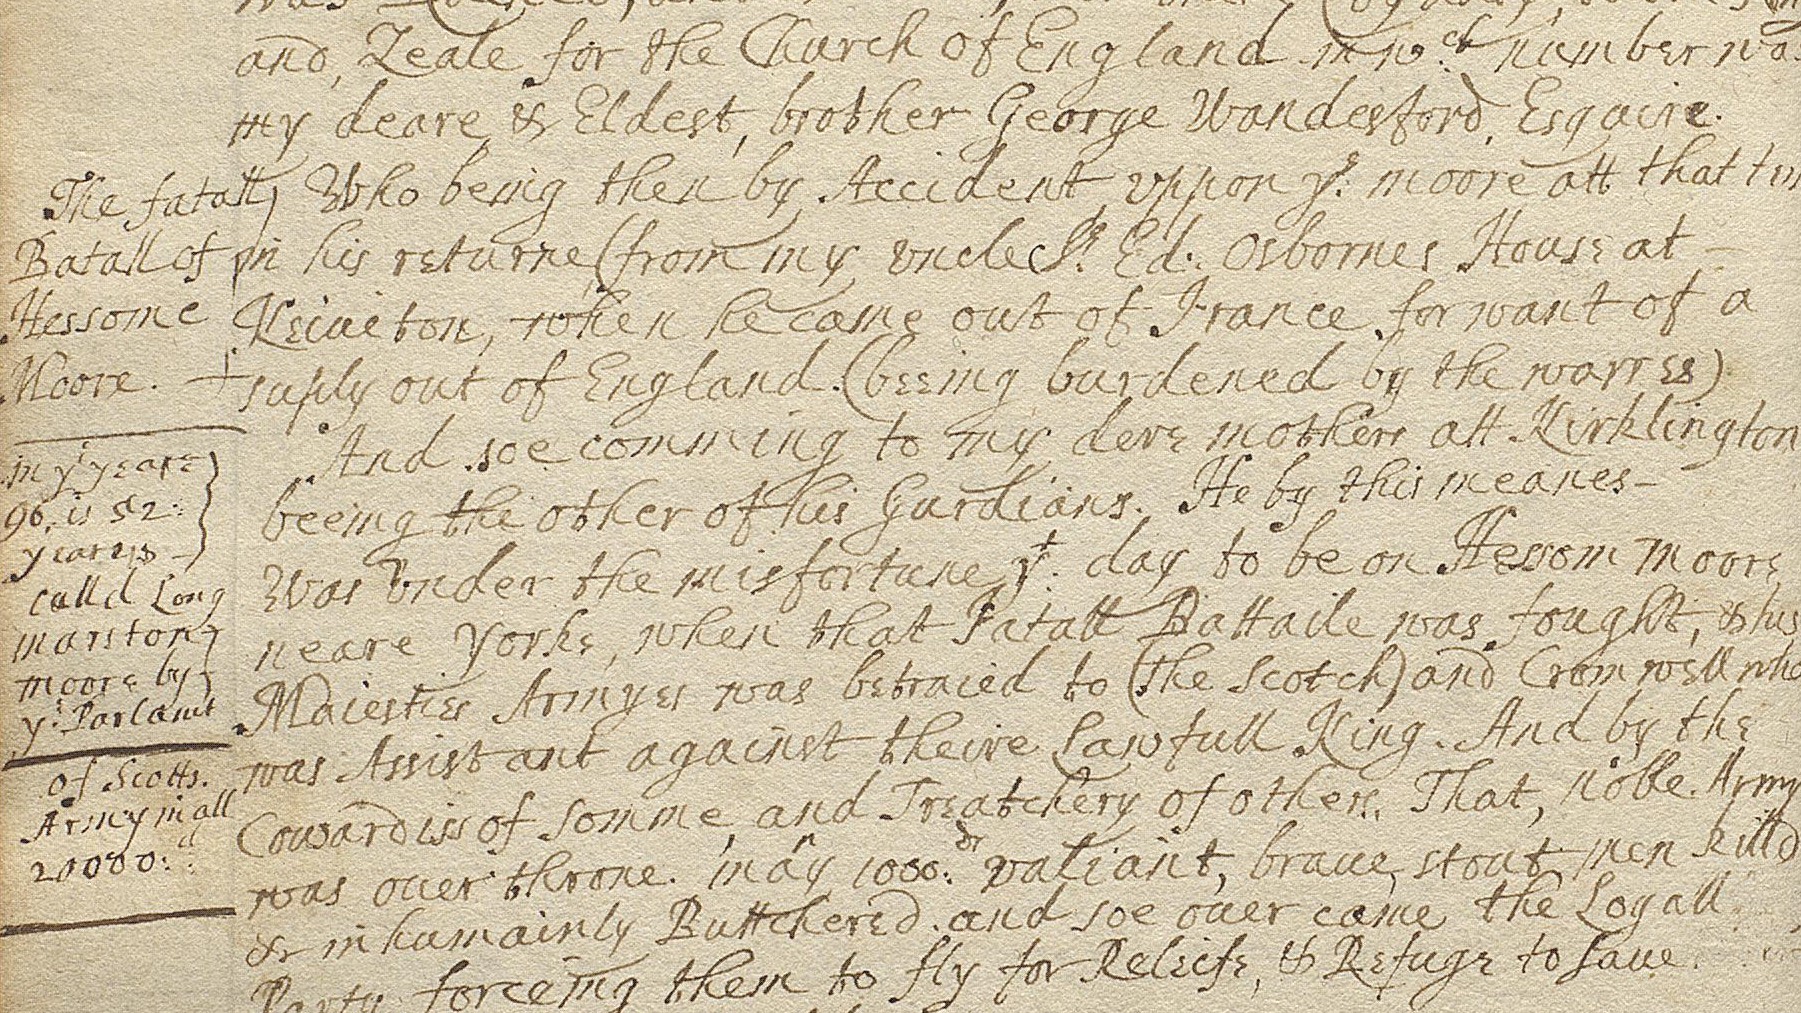 and, Zeale for the Church of England. in wch. number was
my deare, & Eldest, brother George Wandesford, Esquire.
Who being then by, Accident, vppon ye. moore att that
in his returne, (from my, vncle Sr. Ed: Osbornes House at –
Keiueton, when he came out of France for want of a
suply out of England. (beeing burdened by the warres)
And soe comming to my dere mothers att Kirklington
beeing the other of his Gurdians. He by this meanes –
Was vnder the misfortune, yt. day to be on Hessom moore,
neare Yorke, when that Fatall Battaile was fought, & his
Maiesties Armyes was betraied to (the Scotch) and Cromwell who
was Assistant against theire Lawfull King. And by the
Cowardiss of somme, and Treatchery of others. That, noble Army
was ouer throne. may 1000: or valiant, braue, stout men killd
& inhumainly Buttchered. and soe ouer came the Loyall
Party forceing them to fly for Releife, & Refuge to saue.
The fatall
Batall of
Hessome
Moore. +
in ye yeare
96, is 52:
yeares
calld Long
marston
moore by
ye. Parlamt
of Scotts.
Army in all
20000: